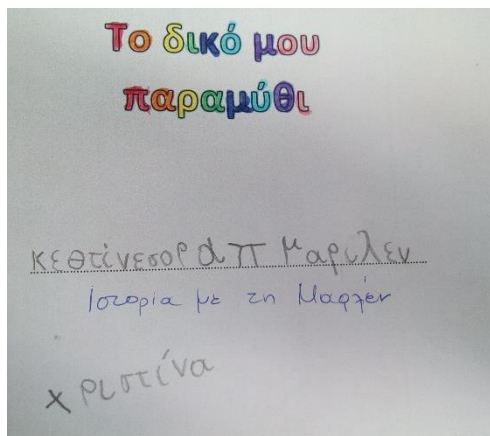 Το δικό μου
παραμύθι
κεθτίνεσορ απ μαριλεν
Ιστορία με τη Μαρλέν
χριστίνα